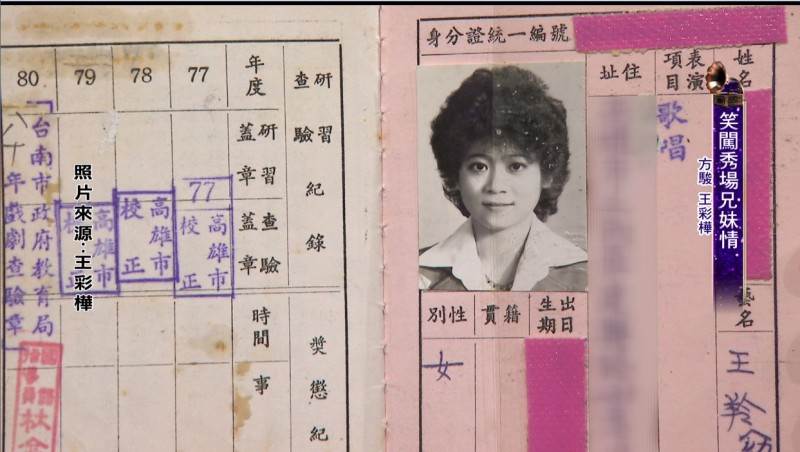 笑闖秀場兄妹情
方駿 王彩樺
照片來源:王彩樺
身分證統一編號
姓名
表演項目
歌唱
住址
藝名
王羚
出生日期
籍貫
性別
女
研習查驗紀錄
獎懲紀
年度
研習蓋章
查驗蓋章
時間
事
77
78
79
80
77
高雄市
校正
高雄市
校正
高雄市
校正
台南市政府教育局
八十年戲劇查驗章